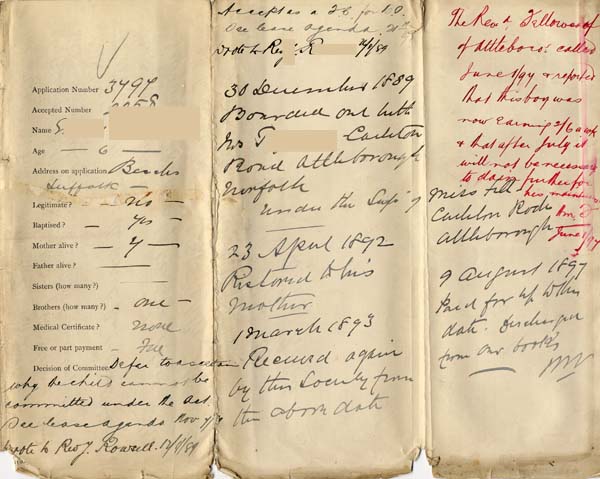 Application Number 3797
Accepted Number
Name G.
Age — 6 —
Address on application Beccles
Suffolk —
Legitimate? — No —
Baptised? — yes —
Mother alive? — y —
Father alive? —
Sisters (how many?) —
Brothers (how many?) — one —
Medical Certificate? none
Free or part payment — Free
Decision of Committee Defer to ascertain
why the child cannot be
committed under the Act
See case agenda Nov
Wrote to Revd J. Rowsell.
Accepted as a F.C. for B.O.
See case agenda.
Wrote to Revd J. R
30 December 1889
Boarded out with
Mrs T Carleton
Road Attleborough
Norfolk
under the Sup. of
23 April 1892
Restored to his
Mother
1 March 1893
Received again
by this Society from
the above date
The Revd Fellowes
of Attleboro' called
June 1/97 & reported
that this boy was
now earning 2/6 a wk
& that after July it
will not be necessary
to pay further for
his
Miss
Carleton Rode
Attleborough
June 1/97
9 August 1897
Paid for up to this
date. Discharged
from our books